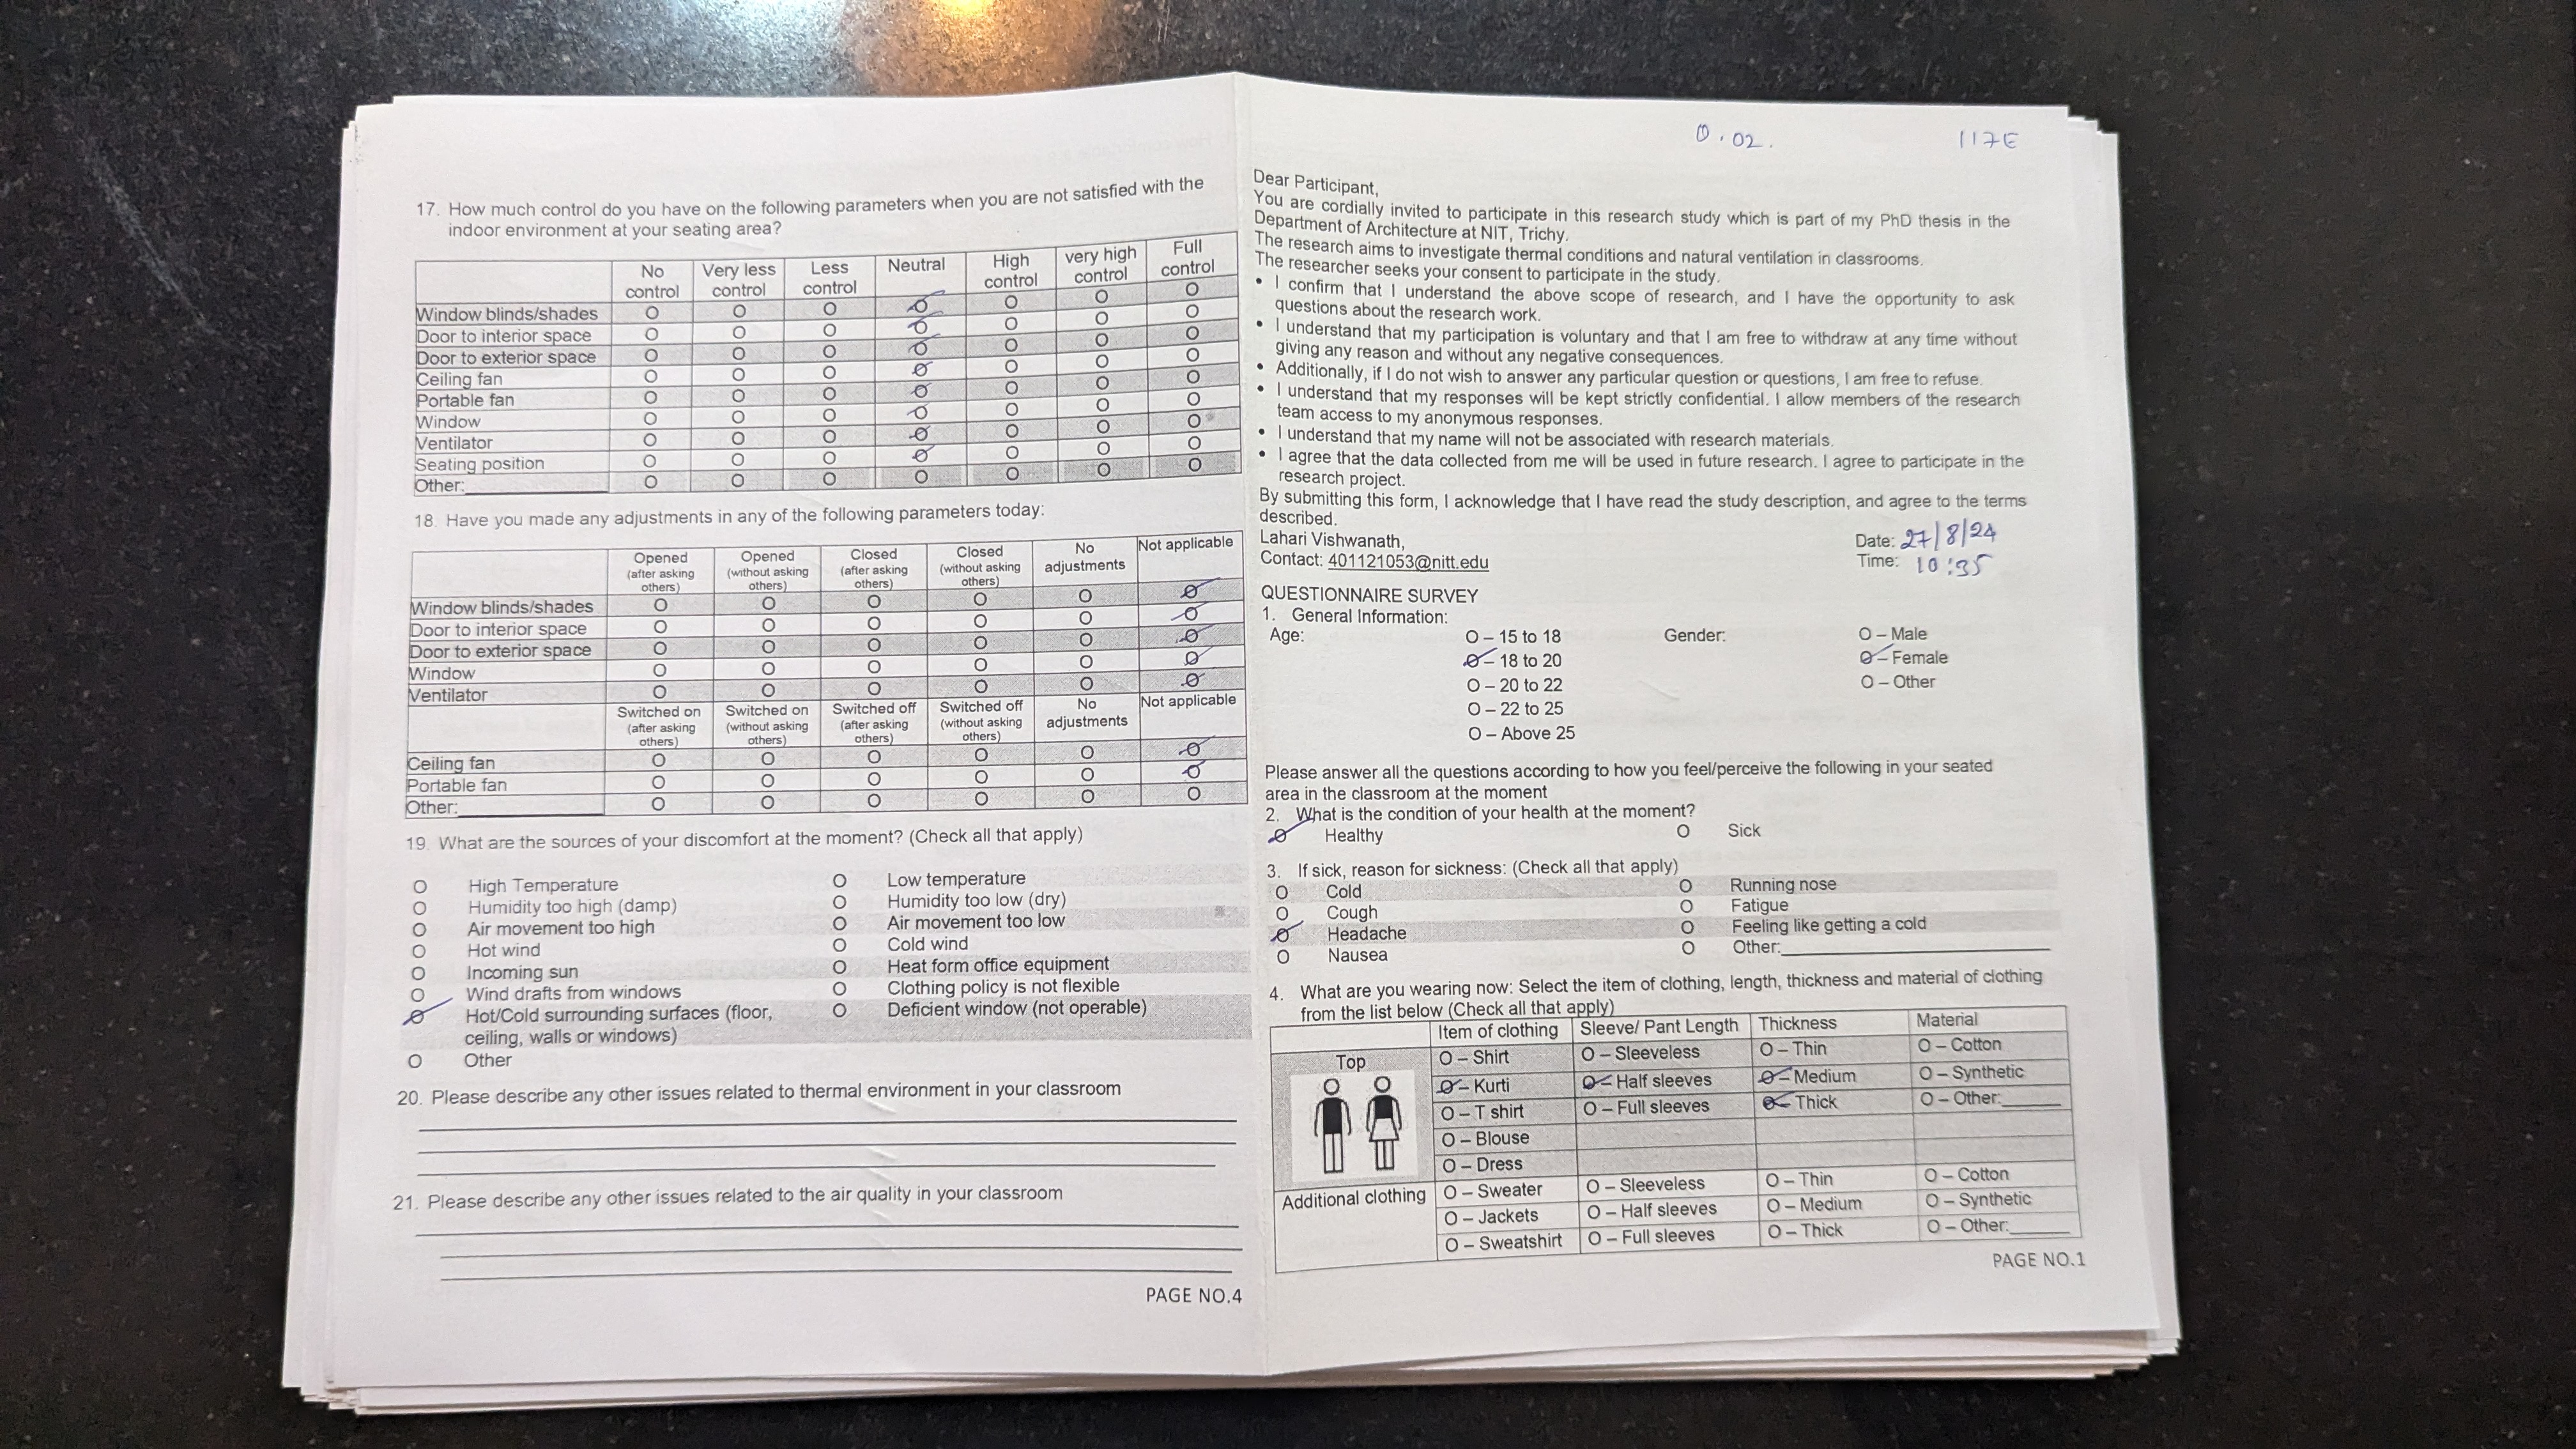 17. How much control do you have on the following parameters when you are not satisfied with the
indoor environment at your seating area?
No control Very less control Less control Neutral High control very high control Full control
Window blinds/shades O O O O O O O
Door to interior space O O O O O O O
Door to exterior space O O O O O O O
Ceiling fan O O O O O O O
Portable fan O O O O O O O
Window O O O O O O O
Ventilator O O O O O O O
Seating position O O O O O O O
Other:________ O O O O O O O
18. Have you made any adjustments in any of the following parameters today:
Opened (after asking others) Opened (without asking others) Closed (after asking others) Closed (without asking others) No adjustments Not applicable
Window blinds/shades O O O O O O
Door to interior space O O O O O O
Door to exterior space O O O O O O
Window O O O O O O
Ventilator O O O O O O
Switched on (after asking others) Switched on (without asking others) Switched off (after asking others) Switched off (without asking others) No adjustments Not applicable
Ceiling fan O O O O O O
Portable fan O O O O O O
Other:________ O O O O O O
19. What are the sources of your discomfort at the moment? (Check all that apply)
O High Temperature O Low temperature
O Humidity too high (damp) O Humidity too low (dry)
O Air movement too high O Air movement too low
O Hot wind O Cold wind
O Incoming sun O Heat form office equipment
O Wind drafts from windows O Clothing policy is not flexible
O Hot/Cold surrounding surfaces (floor, O Deficient window (not operable)
ceiling, walls or windows)
O Other
20. Please describe any other issues related to thermal environment in your classroom
21. Please describe any other issues related to the air quality in your classroom
PAGE NO.4
0.02. 117E
Dear Participant,
You are cordially invited to participate in this research study which is part of my PhD thesis in the
Department of Architecture at NIT, Trichy.
The research aims to investigate thermal conditions and natural ventilation in classrooms.
The researcher seeks your consent to participate in the study.
• I confirm that I understand the above scope of research, and I have the opportunity to ask
questions about the research work.
• I understand that my participation is voluntary and that I am free to withdraw at any time without
giving any reason and without any negative consequences.
• Additionally, if I do not wish to answer any particular question or questions, I am free to refuse.
• I understand that my responses will be kept strictly confidential. I allow members of the research
team access to my anonymous responses.
• I understand that my name will not be associated with research materials.
• I agree that the data collected from me will be used in future research. I agree to participate in the
research project.
By submitting this form, I acknowledge that I have read the study description, and agree to the terms
described.
Lahari Vishwanath, Date: 27/8/24
Contact: 401121053@nitt.edu Time: 10:35
QUESTIONNAIRE SURVEY
1. General Information:
Age: O – 15 to 18 Gender: O – Male
O – 18 to 20 O – Female
O – 20 to 22 O – Other
O – 22 to 25
O – Above 25
Please answer all the questions according to how you feel/perceive the following in your seated
area in the classroom at the moment
2. What is the condition of your health at the moment?
O Healthy O Sick
3. If sick, reason for sickness: (Check all that apply)
O Cold O Running nose
O Cough O Fatigue
O Headache O Feeling like getting a cold
O Nausea O Other:________
4. What are you wearing now: Select the item of clothing, length, thickness and material of clothing
from the list below (Check all that apply)
Item of clothing Sleeve/ Pant Length Thickness Material
Top O – Shirt O – Sleeveless O – Thin O – Cotton
O – Kurti O – Half sleeves O – Medium O – Synthetic
O – T shirt O – Full sleeves O – Thick O – Other:______
O – Blouse
O – Dress
Additional clothing O – Sweater O – Sleeveless O – Thin O – Cotton
O – Jackets O – Half sleeves O – Medium O – Synthetic
O – Sweatshirt O – Full sleeves O – Thick O – Other:______
PAGE NO.1